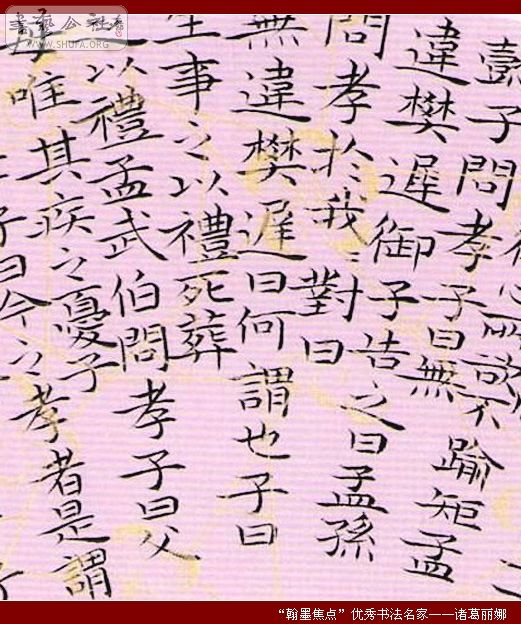 心所欲不踰矩孟
懿子問孝子曰無
違樊遲御子告之曰孟孫
問孝於我〻對曰
無違樊遲曰何謂也子曰
生事之以禮死葬
之以禮孟武伯問孝子曰父
母唯其疾之憂子
子曰今之孝者是謂
書藝公社
WWW.SHUFA.ORG
“翰墨焦点”优秀书法名家——诸葛丽娜